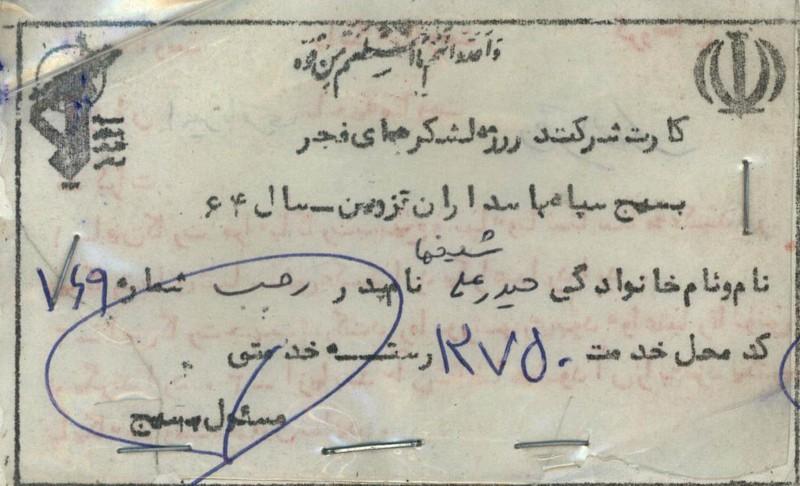 وَ اَعِدّوا لَهُم مَا اسْتَطَعْتُم مِنْ قُوَّه
کارت شرکت در رزم لشگرهای فجر
بسیج سپاه پاسداران قزوین - سال ۶۴
نام و نام خانوادگی حیدرعلی شفیعیها نام پدر رجب شماره ۷۶۹
کد محل خدمت ۳۷۵۰ رسته خدمتی
مسئول بسیج